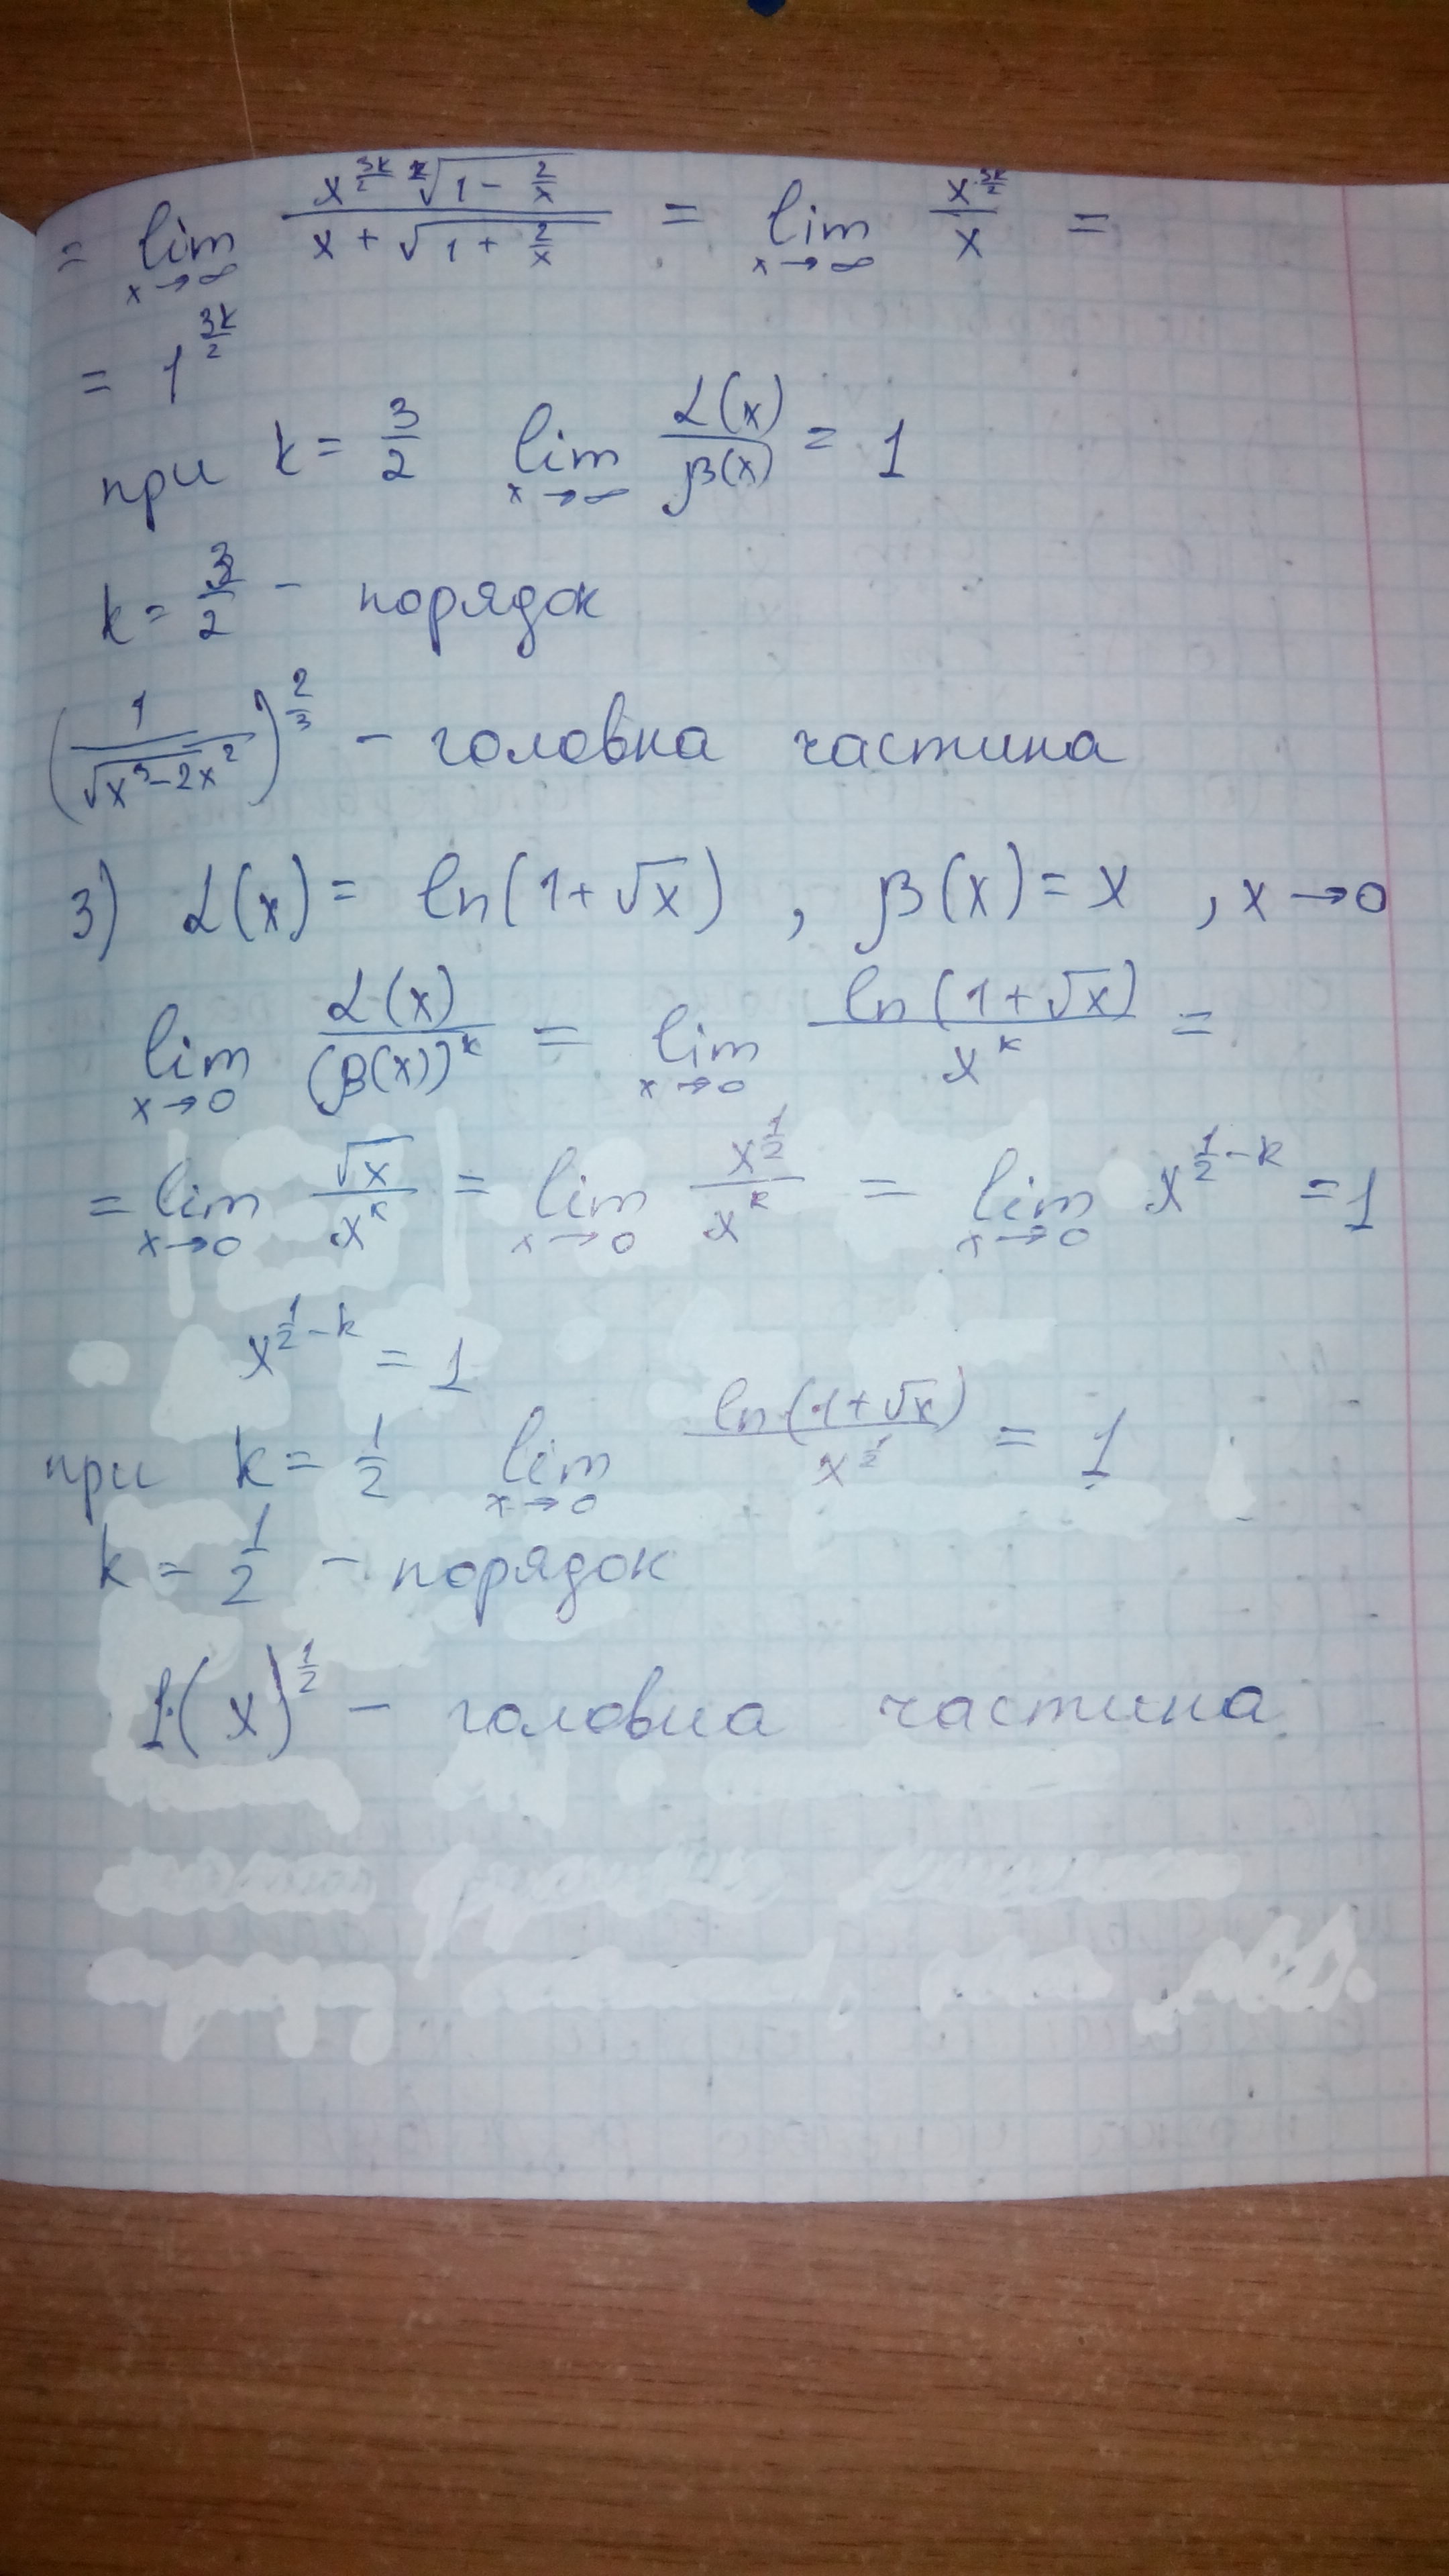 = lim x→∞ x^(3k/2) ᵏ√(1 - 2/x) / x + √(1 + 2/x) = lim x→∞ x^(3k/2) / x =
= 1^(3k/2)
при k = 3/2 lim x→∞ α(x)/β(x) = 1
k = 3/2 - порядок
(1/√(x³-2x²))^(2/3) - головна частина
3) α(x) = ln(1+√x) , β(x) = x , x→0
lim x→0 α(x)/(β(x))^k = lim x→0 ln(1+√x)/x^k =
= lim x→0 √x/x^k = lim x→0 x^(1/2)/x^k = lim x→0 x^(1/2-k) = 1
x^(1/2-k) = 1
при k = 1/2 lim x→0 ln(1+√x)/x^(1/2) = 1
k = 1/2 - порядок
1·(x)^(1/2) - головна частина